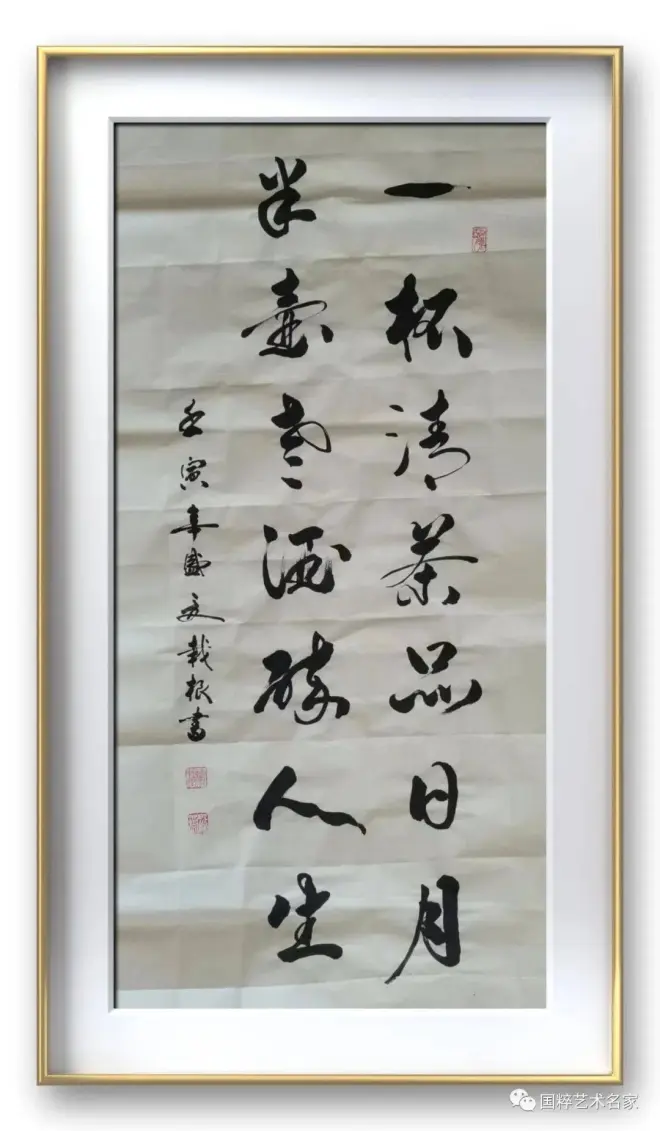 一杯清茶品日月
半壶老酒醉人生
壬寅年盛夏载根书
国粹艺术名家